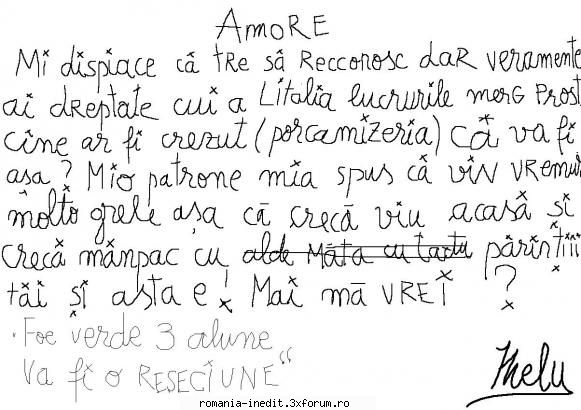 AMORE
Mi dispiace că tre să Recconosc daR veramente
ai dreptate cui a Litalia lucrurile merG Prost
cine ar fi crezut (porcamizeria) că va fi
așa? Mio patrone mia spus că vin vRemuri
molto grele așa că crecă viu acasă și
crecă mânpac cu alde Măta cu tactu părintiii
tăi și asta e! Mai mă VREI ?
"Foe verde 3 alune
Va fi o RESECIUNE"
Ghelu
romania-inedit.3xforum.ro